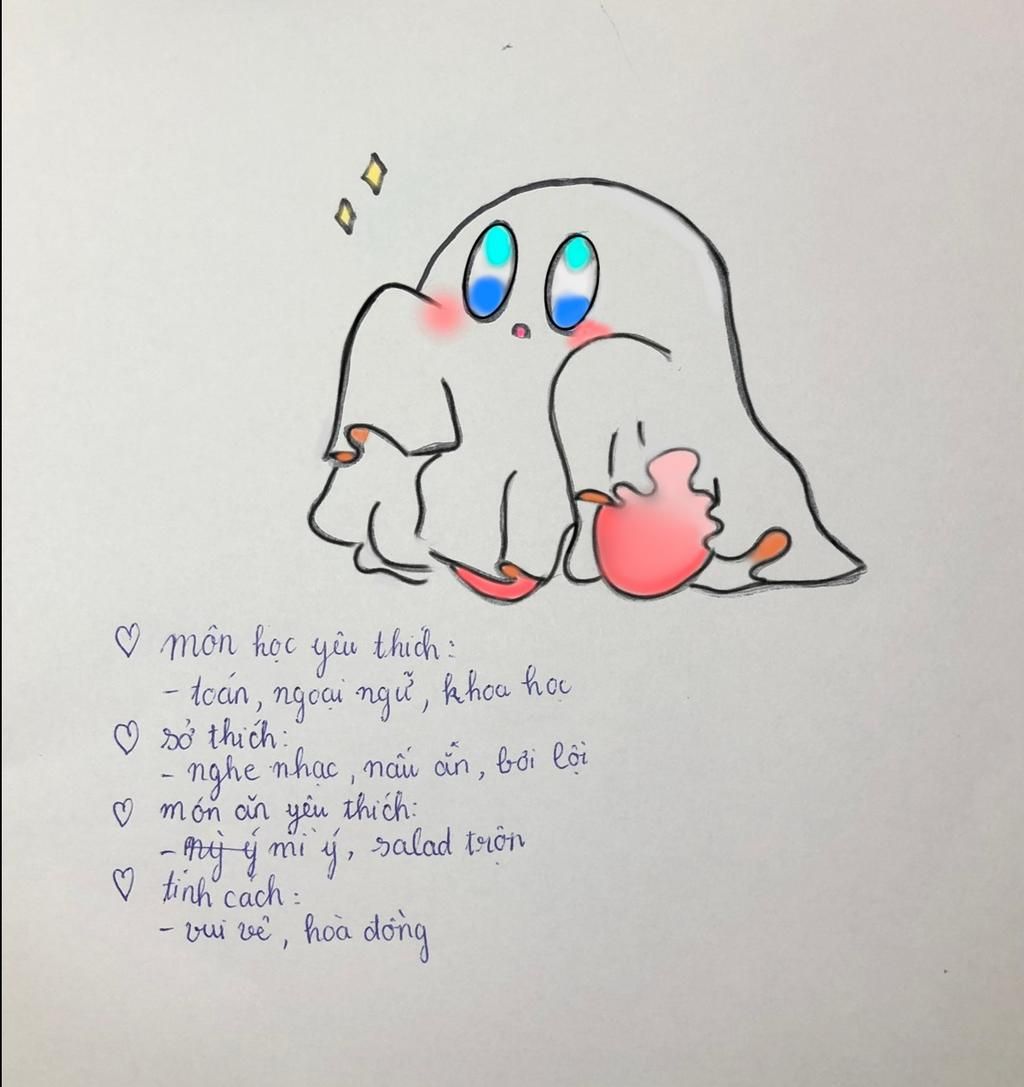 ♡ môn học yêu thích:
- toán, ngoại ngữ, khoa học
♡ sở thích:
- nghe nhạc, nấu ăn, bơi lội
♡ món ăn yêu thích:
- mỳ ý mì ý, salad trộn
♡ tính cách:
- vui vẻ, hoà đồng